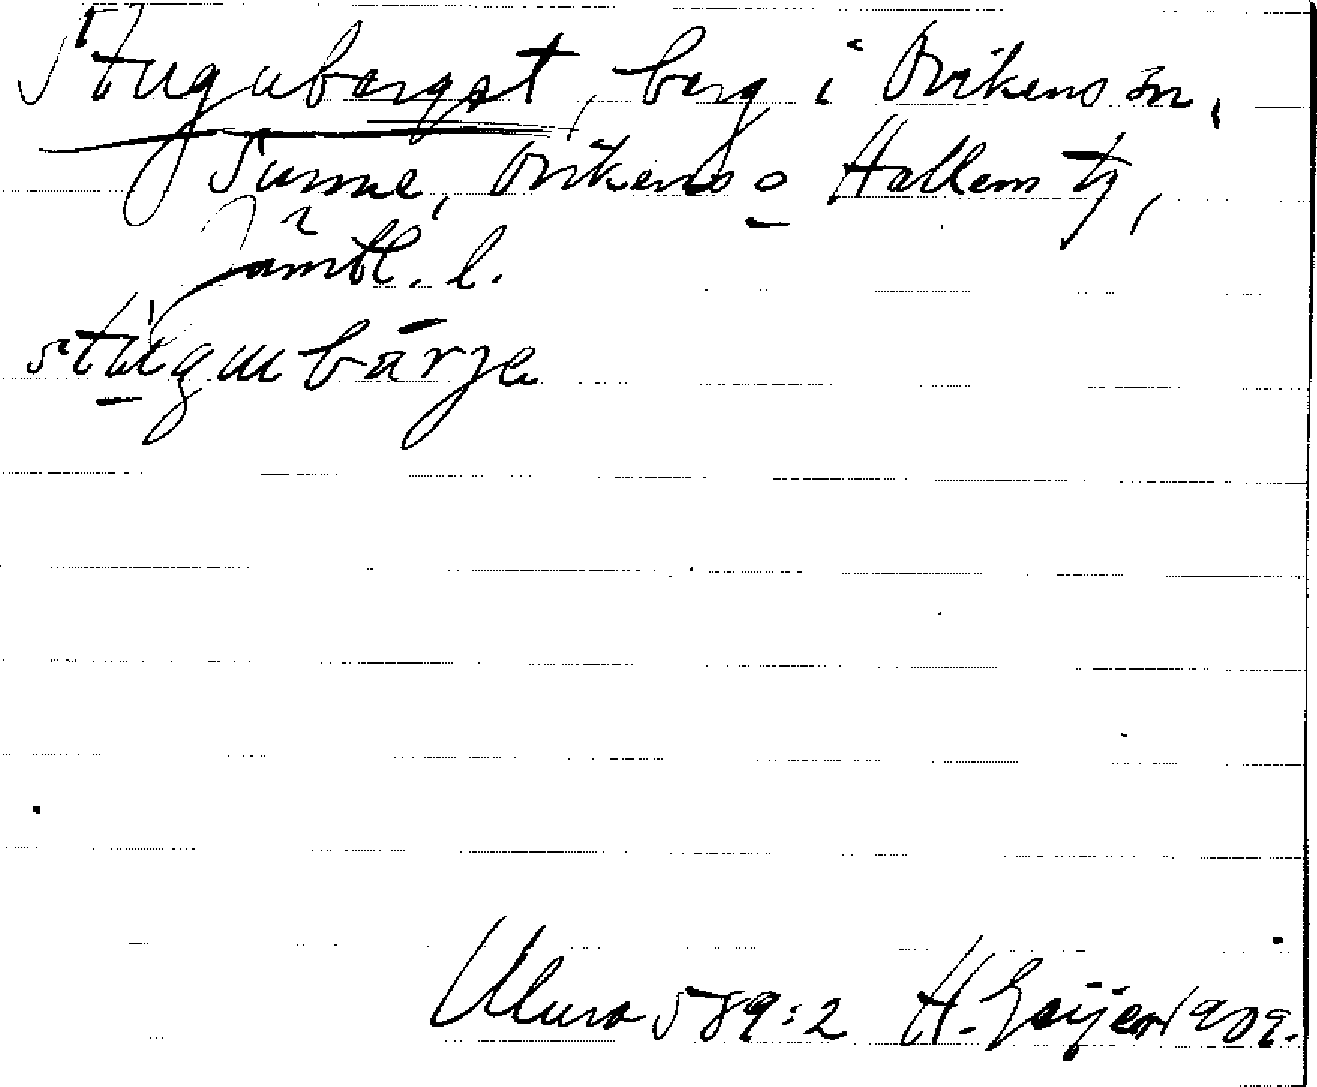 Stuguberget, berg i Ovikens sn,
Sunne, Ovikens o Hallens tg,
Jämtl. l.
stúgubärje
Uluro 589:2 H. Geijer 1909.